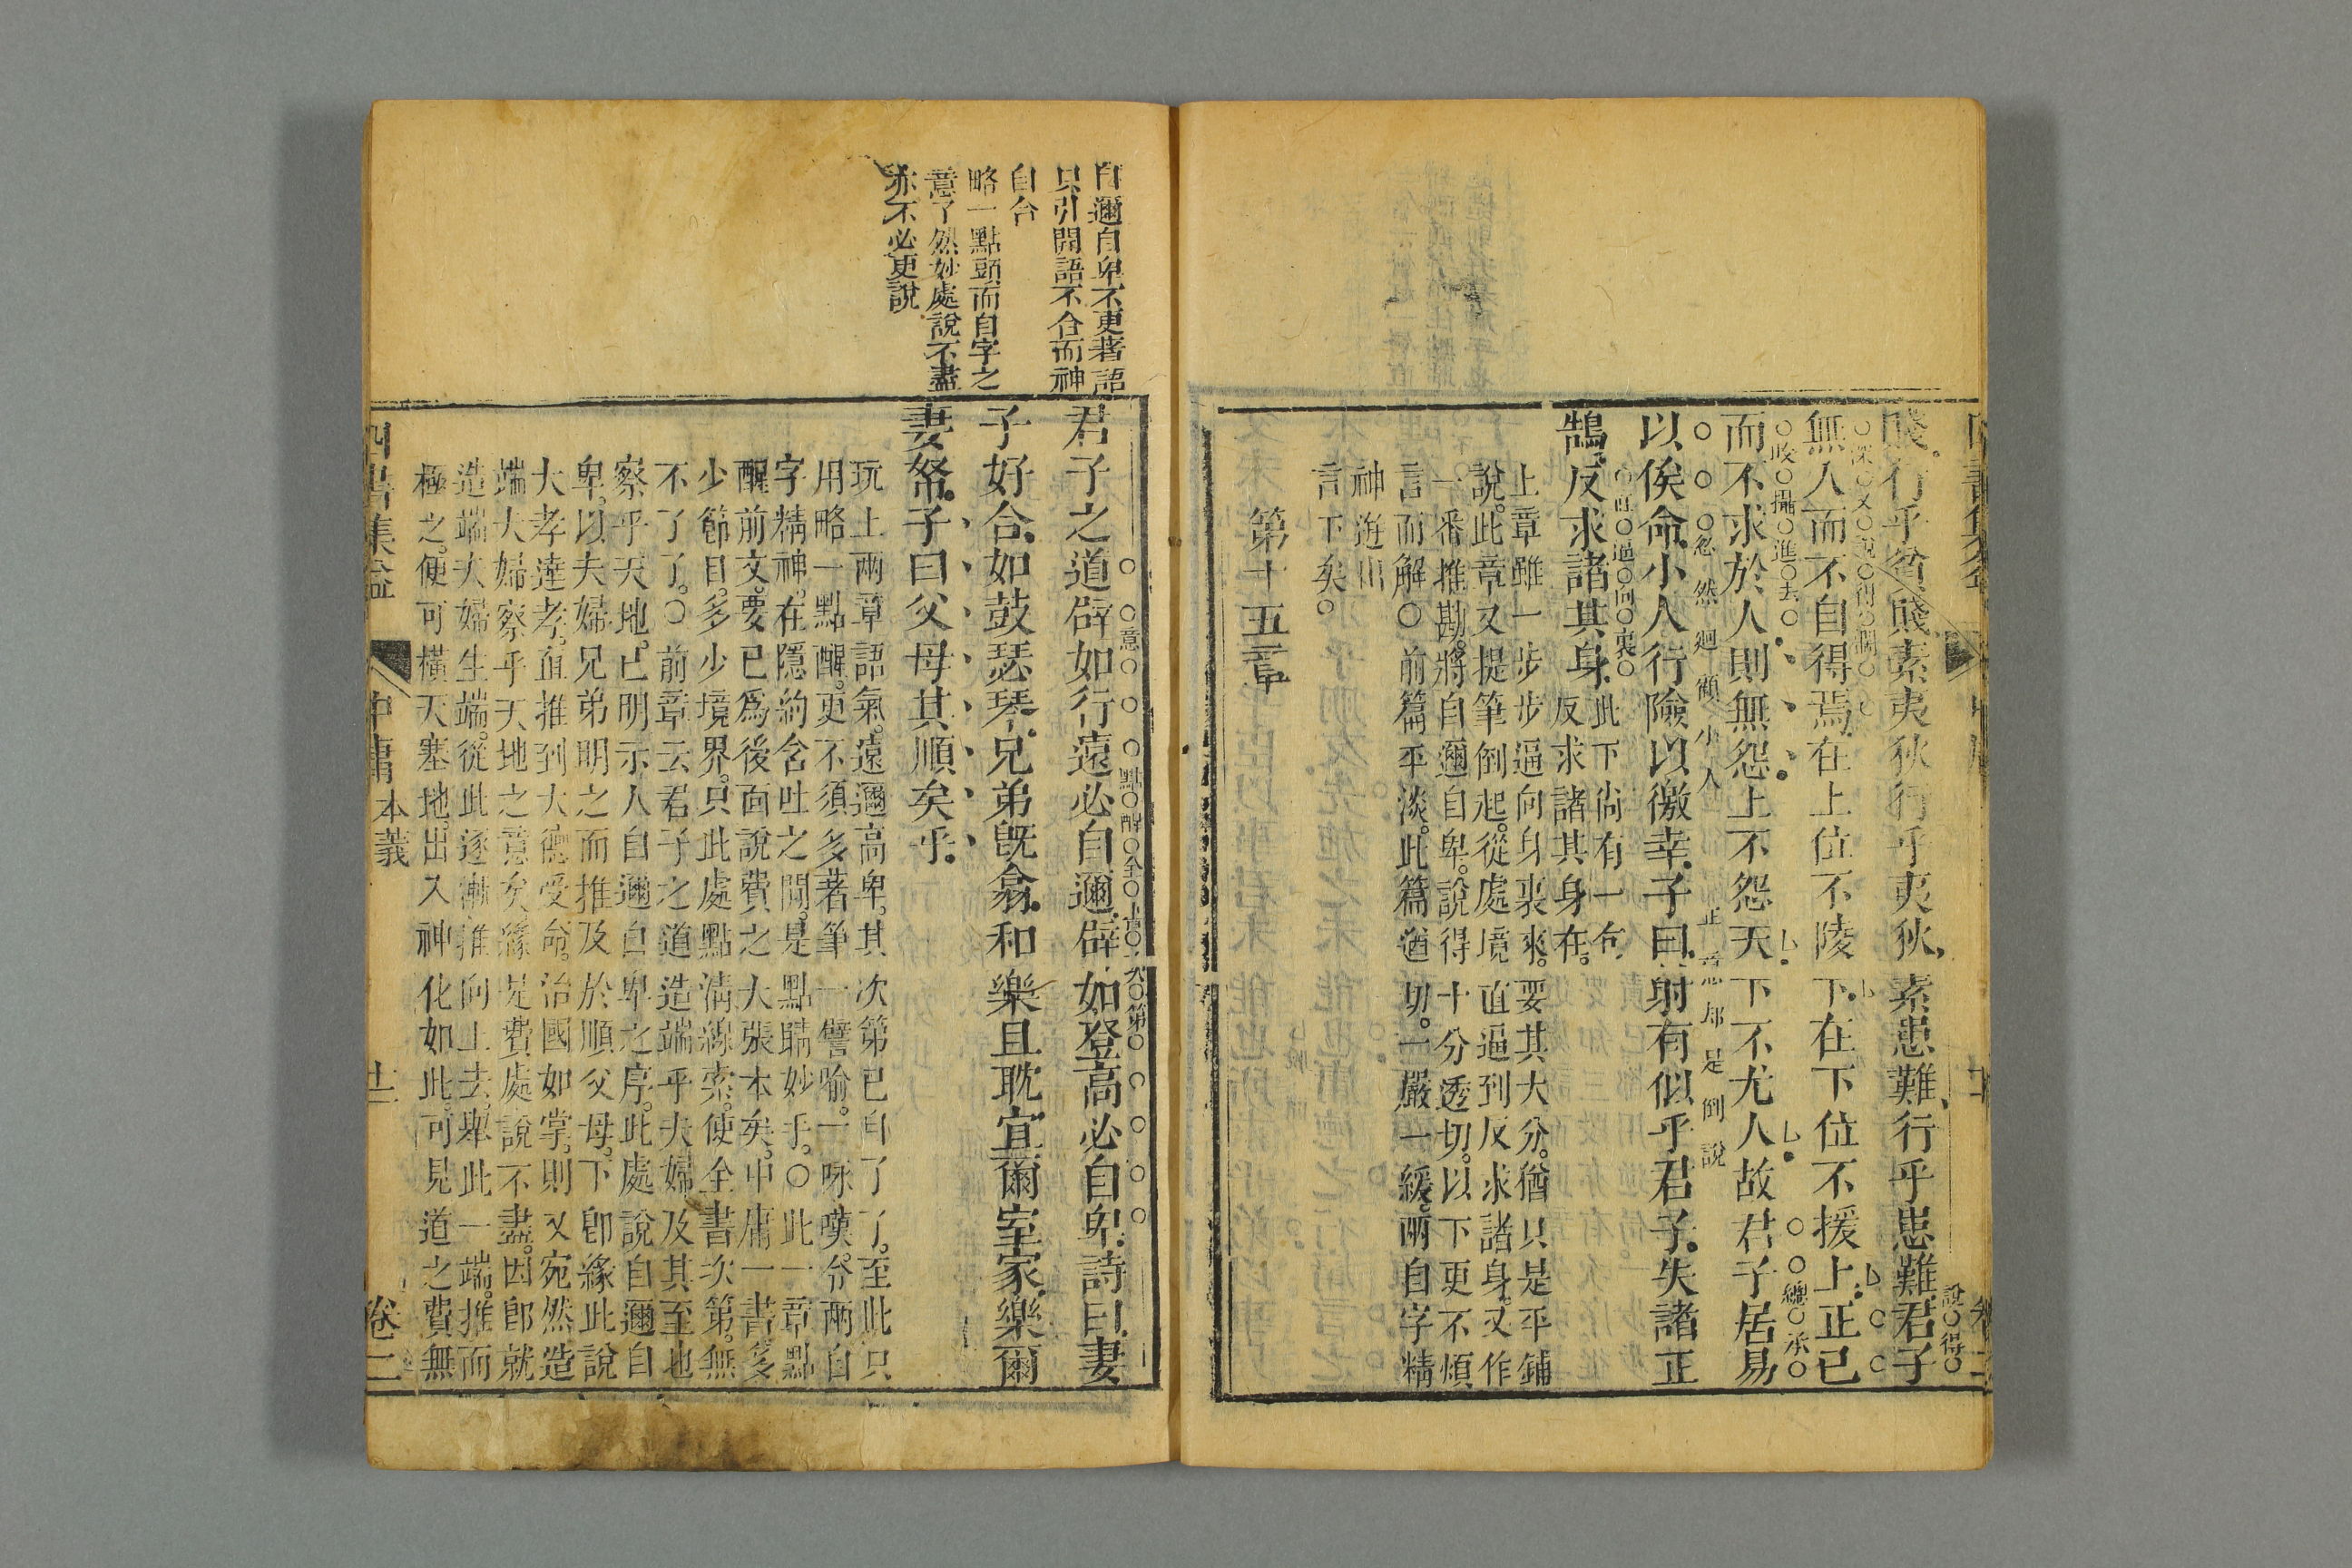 賤行乎貧賤素夷狄行乎夷狄素患難行乎患難君子
無入而不自得焉在上位不陵下在下位不援上正己
而不求於人則無怨上不怨天下不尤人故君子居易
忽然迴顧小人 正意却是倒說
以俟命小人行險以徼幸子曰射有似乎君子失諸正
鵠反求諸其身此下尚有一句
反求諸其身在
上章雖一步步逼向身裏來要其大分猶只是平鋪
說此章又提筆倒起從處境直逼到反求諸身又作
一番推勘將自邇自卑說得十分透切以下更不煩
言而解○前篇平淡此篇遒切一嚴一緩兩自字精
神迸出
言下矣
第十五章
自邇自卑不更著語
只引閒語不合而神
自合
略一點頭而自字之
意了然妙處說不盡
亦不必更說
君子之道辟如行遠必自邇辟如登高必自卑詩曰妻
子好合如鼓瑟琴兄弟既翕和樂且耽宜爾室家樂爾
妻帑子曰父母其順矣乎
玩上兩章語氣遠邇高卑其次第已自了了至此只
用略一點醒更不須多著筆一譬喻一咏嘆分兩自
字精神在隱約含吐之間是點睛妙手○此一章點
醒前文要已爲後面說費之大張本矣中庸一書多
少節目多少境界只此處點清線索使全書次第無
不了了○前章云君子之道造端乎夫婦及其至也
察乎天地已明示人自邇自卑之序此處說自邇自
卑以夫婦兄弟明之而推及於順父母下即緣此說
大孝達孝直推到大德受命治國如掌則又宛然造
端夫婦察乎天地之意矣緣是費處說不盡因即就
造端夫婦生端從此逐漸推向上去舉此一端推而
極之便可橫天塞地出入神化如此可見道之費無
四書集益 中庸 本義 卷二